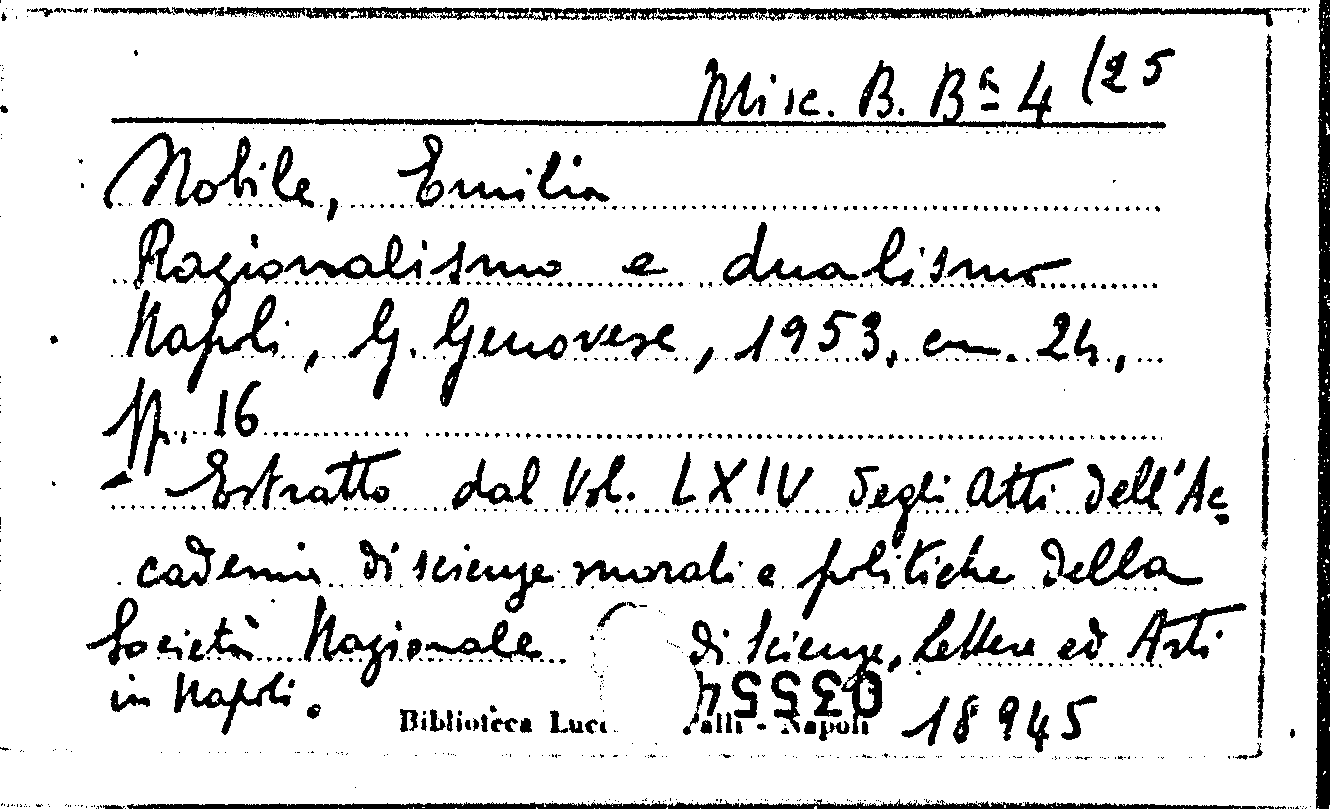 Misc. B. Bª 4 (25
Nobile, Emilia
Razionalismo e dualismo
Napoli, G. Genovese, 1953, cm. 24,
pp. 16
- Estratto dal Vol. LXIV degli Atti dell'Ac=
cademia di scienze morali e politiche della
Società Nazionale di Scienze, Lettere ed Arti
in Napoli.
Biblioteca Lucc Palli - Napoli 18945